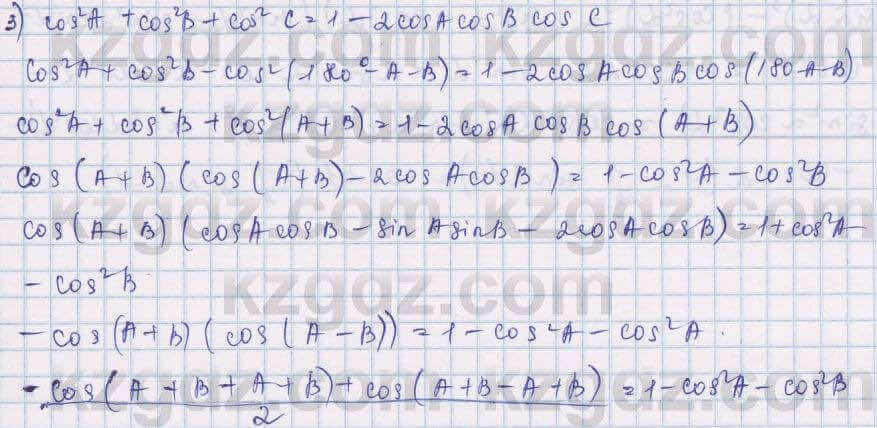 3) cos²A + cos²B + cos² C = 1 - 2cosA cosB cos C
Cos²A + cos²B - cos²(180° - A - B) = 1 - 2cos A cos B cos (180-A-B)
cos²A + cos²B + cos²(A+B) = 1 - 2cosA cosB cos (A+B)
cos (A+B) (cos (A+B) - 2cos A cosB) = 1 - cos²A - cos²B
cos (A+B) (cosA cosB - sin A sinB - 2cosA cosB) = 1 + cos²A -
- cos²B
- cos (A+B) (cos (A-B)) = 1 - cos²A - cos²A.
- cos (A+B+A+B) + cos (A+B-A+B) / 2 = 1 - cos²A - cos²B
kzgdz.com
kzgdz.com